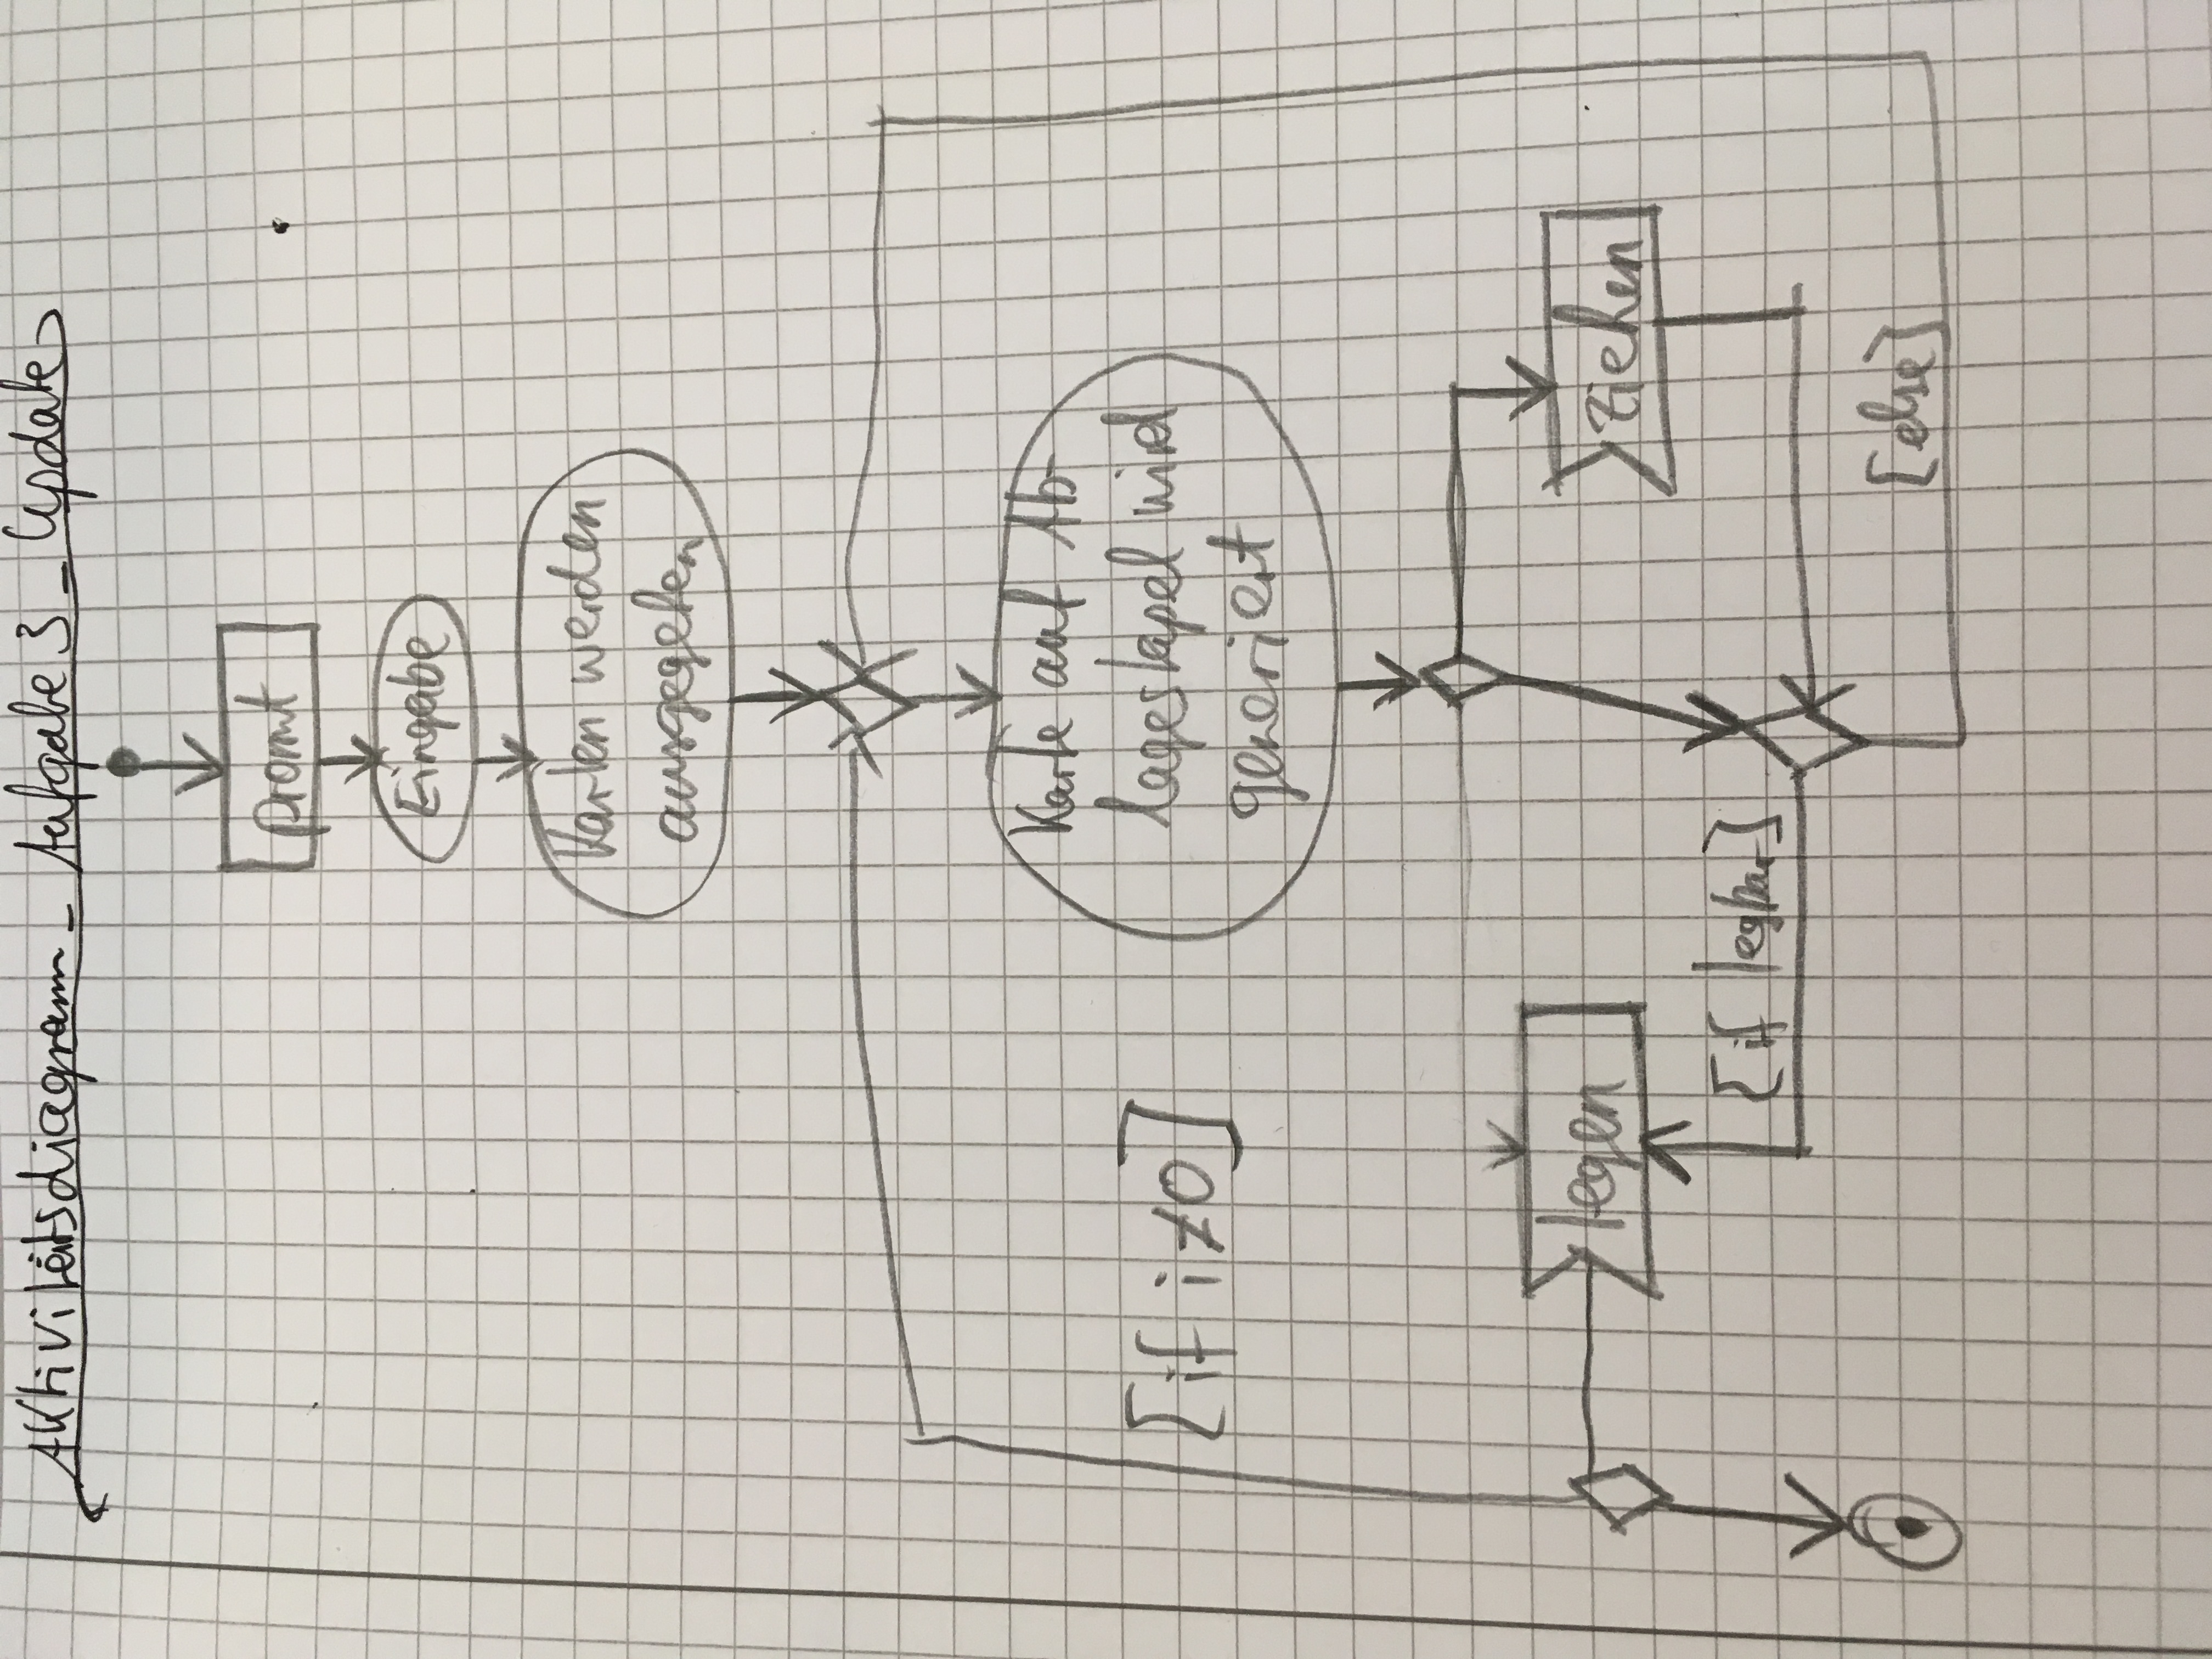 Aktivitätsdiagramm_Aufgabe 3_Update
promt
Eingabe
Karten werden
ausgegeben
Karte auf Ab-
lagestapel wird
generiert
[if i≠0]
legen
ziehen
[if legbar]
[else]